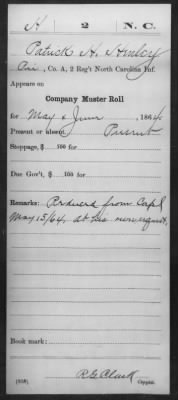 H 2 N. C.
Patrick H. Henley
Pvt, Co. A, 2 Reg't North Carolina Inf.
Appears on
Company Muster Roll
for May & June, 1864.
Present or absent, Present
Stoppage, $ 100 for
Due Gov't, $ 100 for
Remarks: Reduced from Corpl
May 15/64, at his own request.
Book mark:
R G Clark
(858) Copyist.